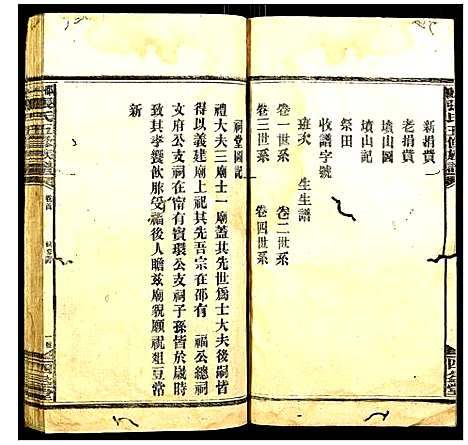 新捐貲
老捐貲
墳山圖
墳山記
祭田
收譜字號
班次　生生譜
卷一世系　卷二世系
卷三世系　卷四世系
祠堂圖記
禮大夫三廟士一廟蓋其先世爲士大夫後嗣皆
得以義建廟上祀其先吾宗在邵有　福公總祠
文府公支祠在甯有賓環公支祠子孫皆於歲時
致其孝饗飲胙受福後人瞻茲廟貌願祝俎豆常
新
氏五修族譜
卷首